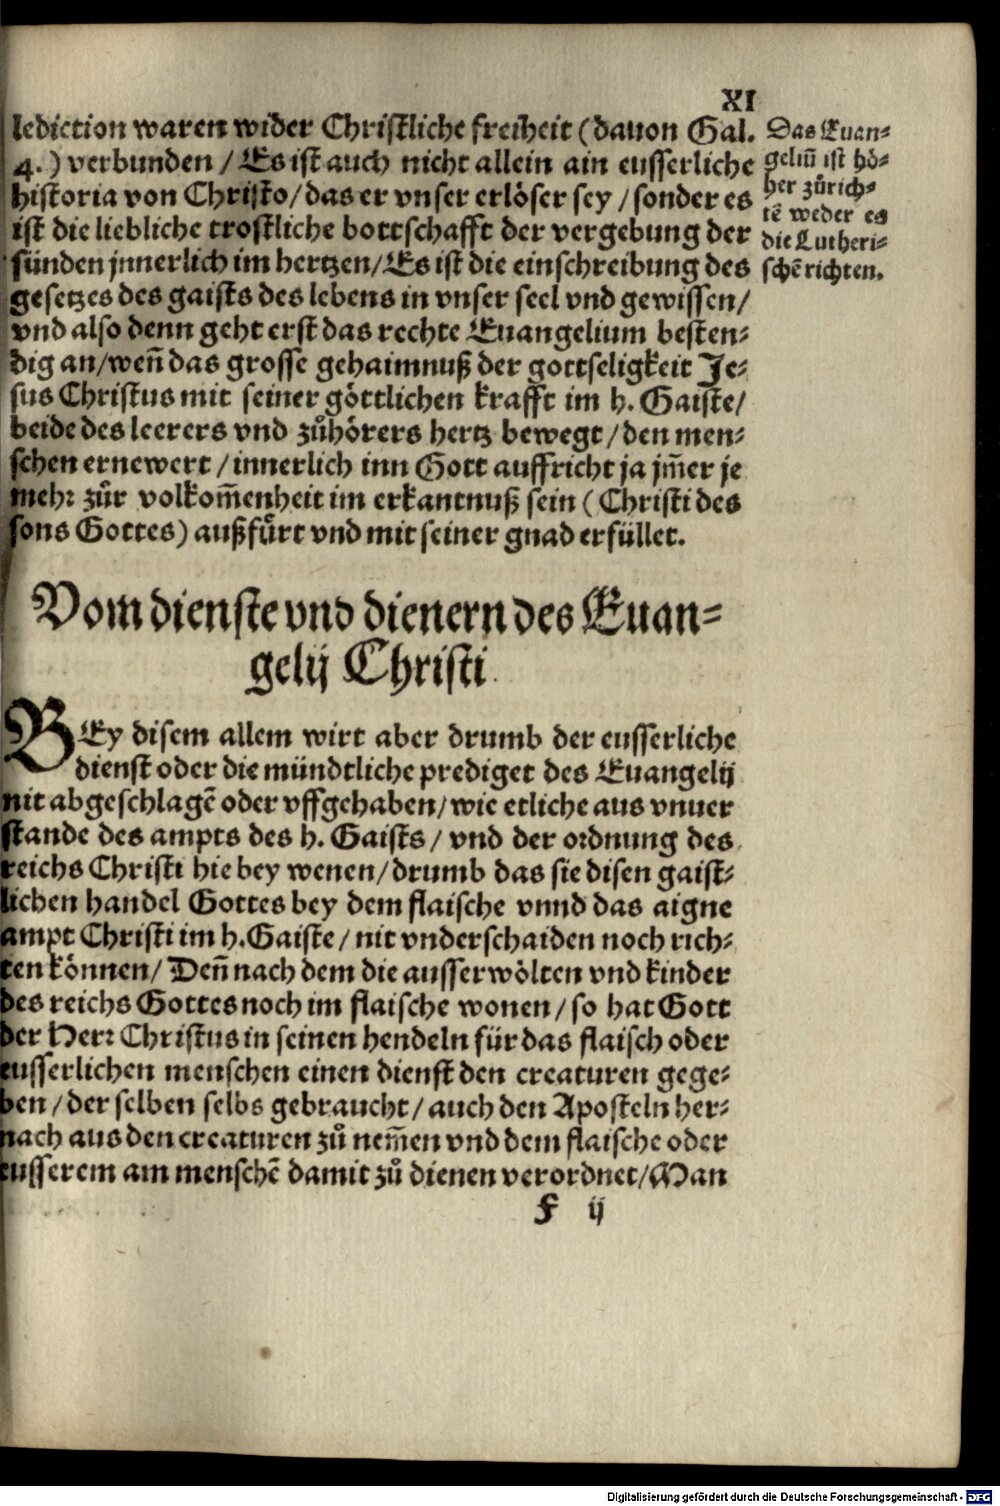 XI
lediction waren wider Christliche freiheit (dauon Gal.
4.) verbunden / Es ist auch nicht allein ain eusserliche
historia von Christo / das er vnser erlöser sey / sonder es
ist die liebliche trostliche bottschafft der vergebung der
sünden jnnerlich im hertzen / Es ist die einschreibung des
gesetzes des gaists des lebens in vnser seel vnd gewissen /
vnd also denn geht erst das rechte Euangelium besten⸗
dig an / weñ das grosse gehaimnuß der gottseligkeit Je⸗
sus Christus mit seiner göttlichen krafft im h. Gaiste /
beide des leerers vnd zůhörers hertz bewegt / den men⸗
schen ernewert / innerlich inn Gott auffricht ja jm̃er je
mehr zůr volkom̃enheit im erkantnuß sein (Christi des
sons Gottes) außfůrt vnd mit seiner gnad erfüllet.
Das Euan⸗
geliũ ist hö⸗
her zůrich⸗
tẽ weder es
die Lutheri⸗
schẽ richten.
Vom dienste vnd dienern des Euan⸗
gelij Christi
BEy disem allem wirt aber drumb der eusserliche
dienst oder die mündtliche prediget des Euangelij
nit abgeschlagẽ oder vffgehaben / wie etliche aus vnuer
stande des ampts des h. Gaists / vnd der ordnung des
reichs Christi hie bey wenen / drumb das sie disen gaist⸗
lichen handel Gottes bey dem flaische vnnd das aigne
ampt Christi im h. Gaiste / nit vnderschaiden noch rich⸗
ten können / Deñ nach dem die ausserwölten vnd kinder
des reichs Gottes noch im flaische wonen / so hat Gott
der Herr Christus in seinen hendeln für das flaisch oder
eusserlichen menschen einen dienst den creaturen gege⸗
ben / der selben selbs gebraucht / auch den Aposteln her⸗
nach aus den creaturen zů nem̃en vnd dem flaische oder
eusserem am menschẽ damit zů dienen verordnet / Man
F ij
Digitalisierung gefördert durch die Deutsche Forschungsgemeinschaft - DFG